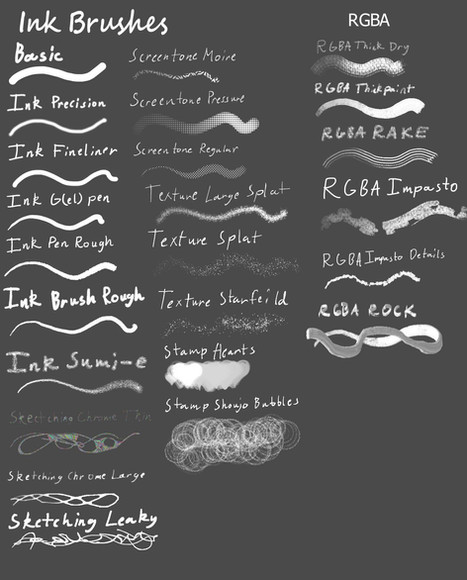 Ink Brushes
Basic
Ink Precision
Ink Fineliner
Ink G(el) pen
Ink Pen Rough
Ink Brush Rough
Ink Sumi-e
Sketching Chrome Thin
Sketching Chrome Large
Sketching Leaky
Screentone Moire
Screentone Pressure
Screentone Regular
Texture Large Splat
Texture Splat
Texture Starfeild
Stamp Hearts
Stamp Shoujo Bubbles
RGBA
RGBA Thick Dry
RGBA Thickpaint
RGBA RAKE
RGBA Impasto
RGBA Impasto Details
RGBA ROCK